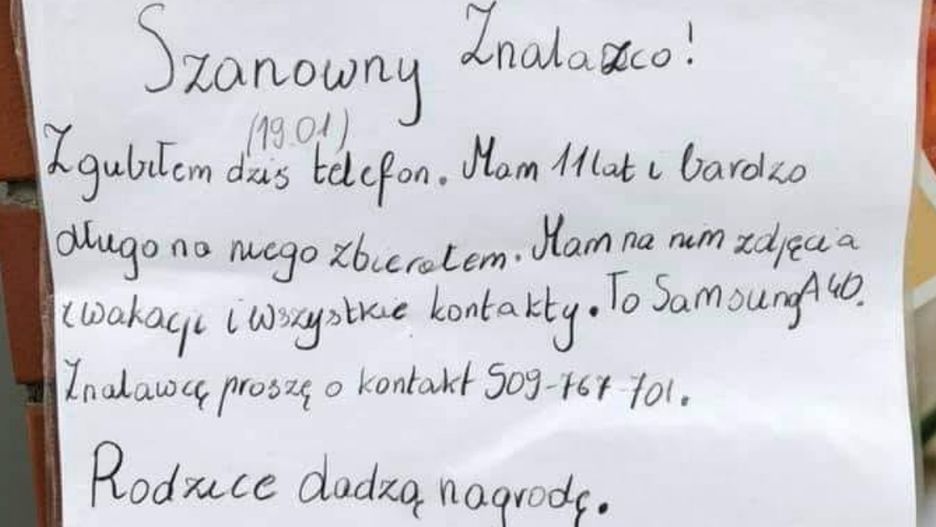 Szanowny Znalazco!
(19.01)
Zgubiłem dziś telefon. Mam 11 lat i bardzo
długo na niego zbierałem. Mam na nim zdjęcia
z wakacji i wszystkie kontakty. To Samsung A40.
Znalawcę proszę o kontakt 509-767-701.
Rodzice dadzą nagrodę.